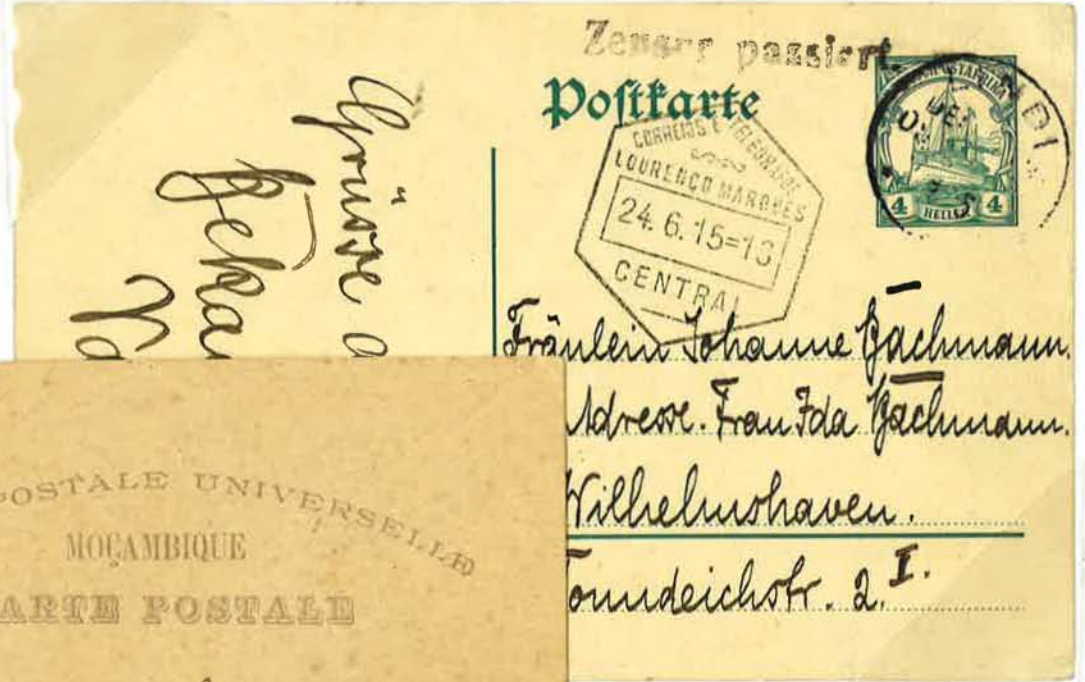 Zensur passiert.
Postkarte
4 HELLER 4
CORREIOS E TELEGRAFOS
LOURENÇO MARQUES
24.6.15=13
CENTRAL
Grüsse
Fräulein Johanne Bachmann.
Adresse. Frau Ida Bachmann.
Wilhelmshaven.
2. I.
POSTALE UNIVERSELLE
MOÇAMBIQUE
ARTE POSTALE